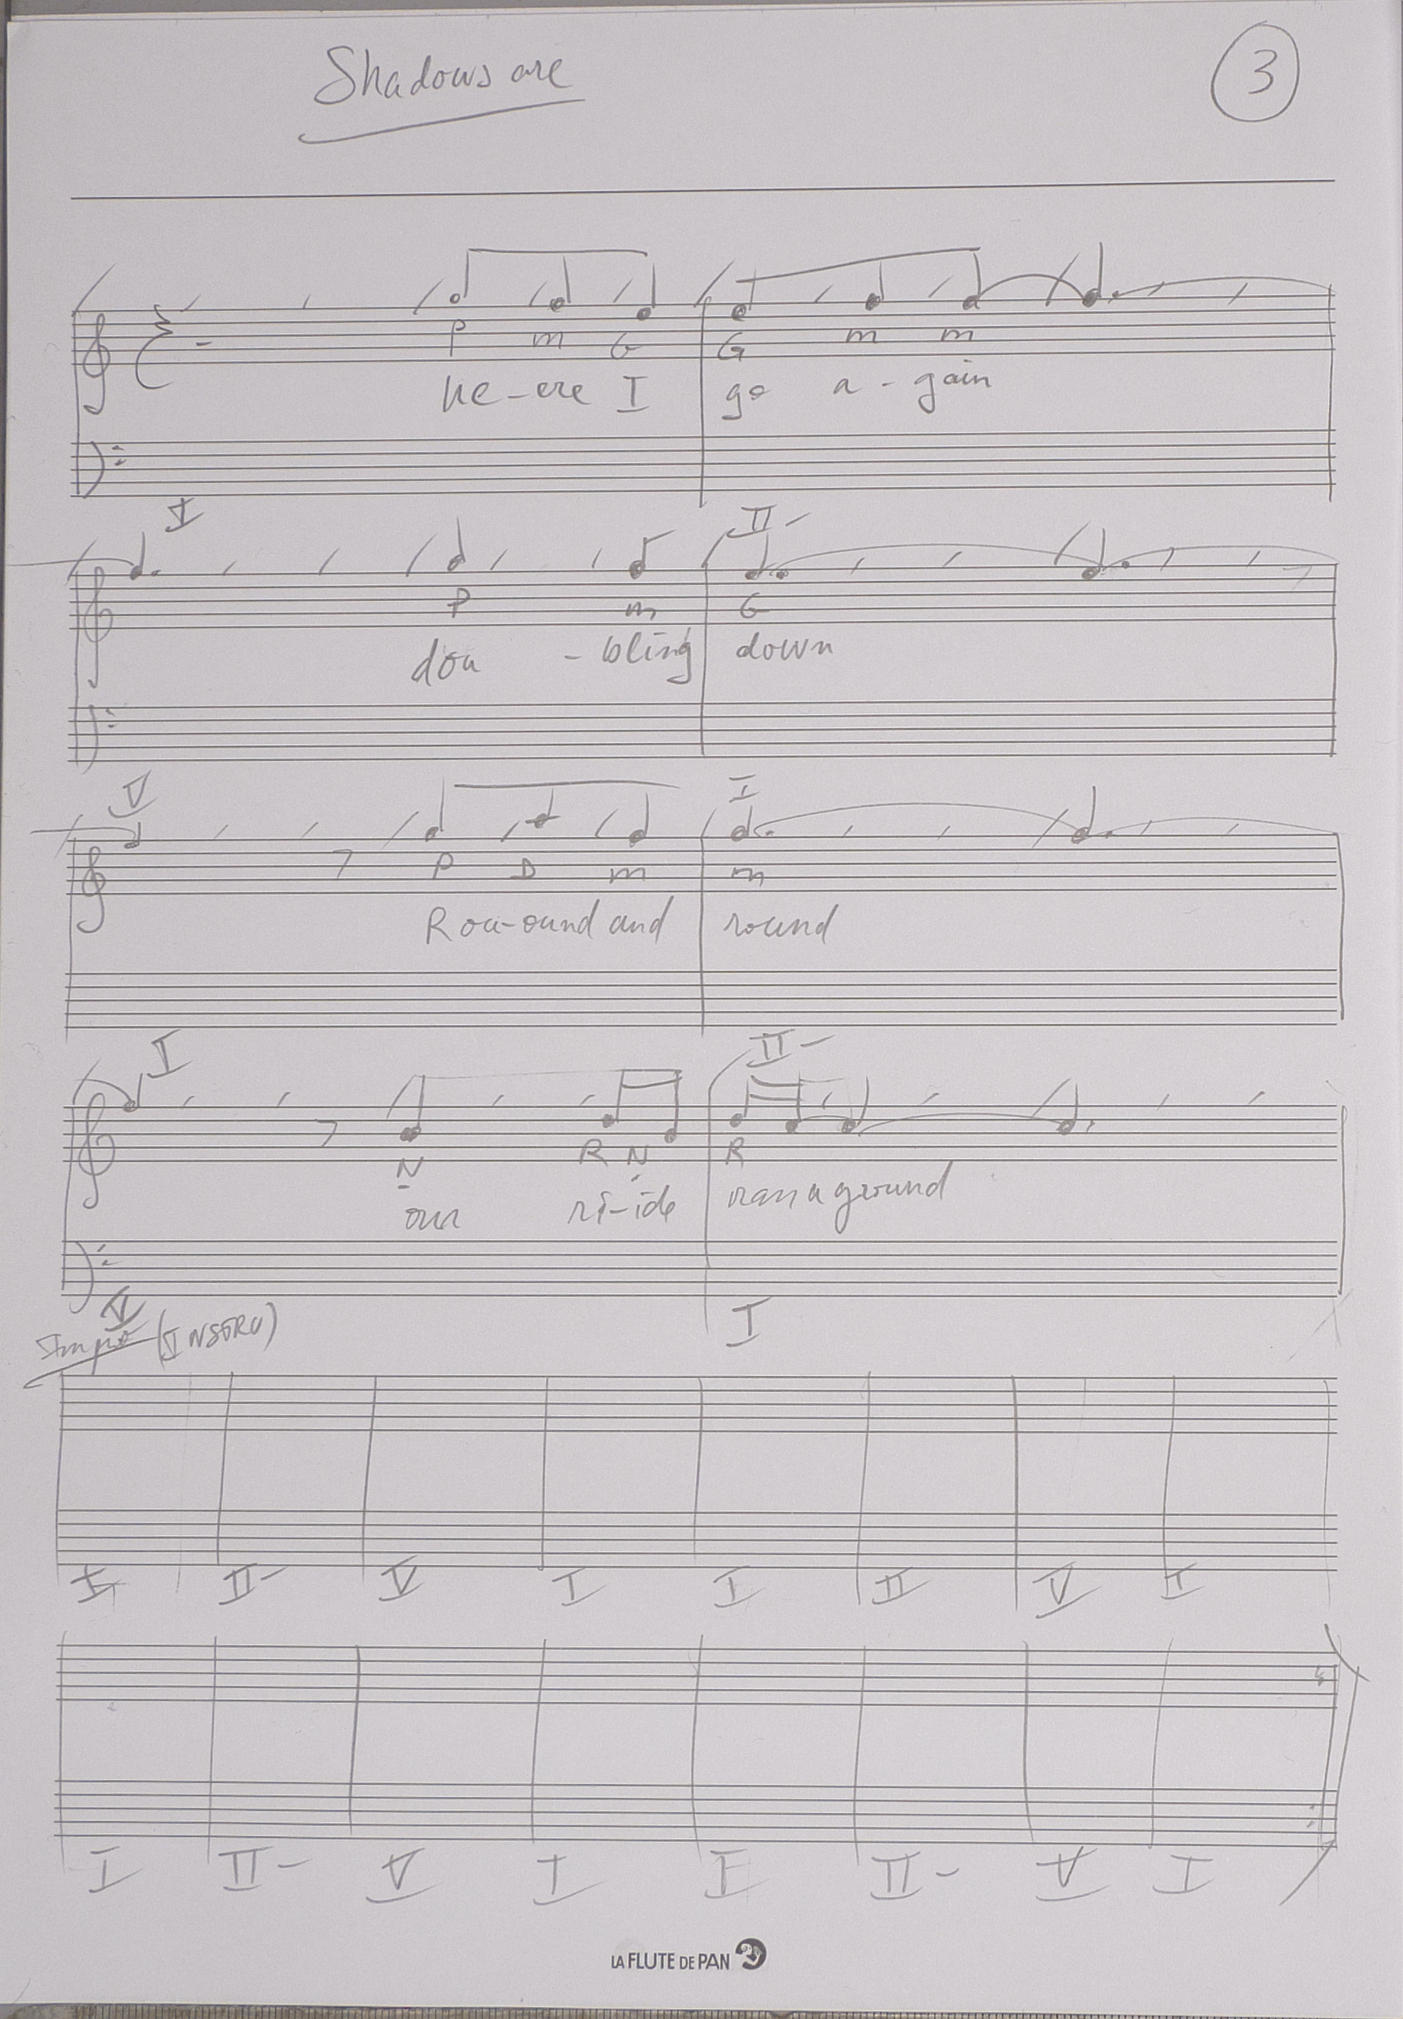 Shadows are
3
P m G G m m
he-ere I go a-gain
I II-
P m G
dou -bling down
V I
P D m m
Rou-ound and round
I II-
N R N R
our ri-ide ran a ground
V I
(INSTRU)
I II- V I I II V I
I II- V I I II- V I
LA FLUTE DE PAN